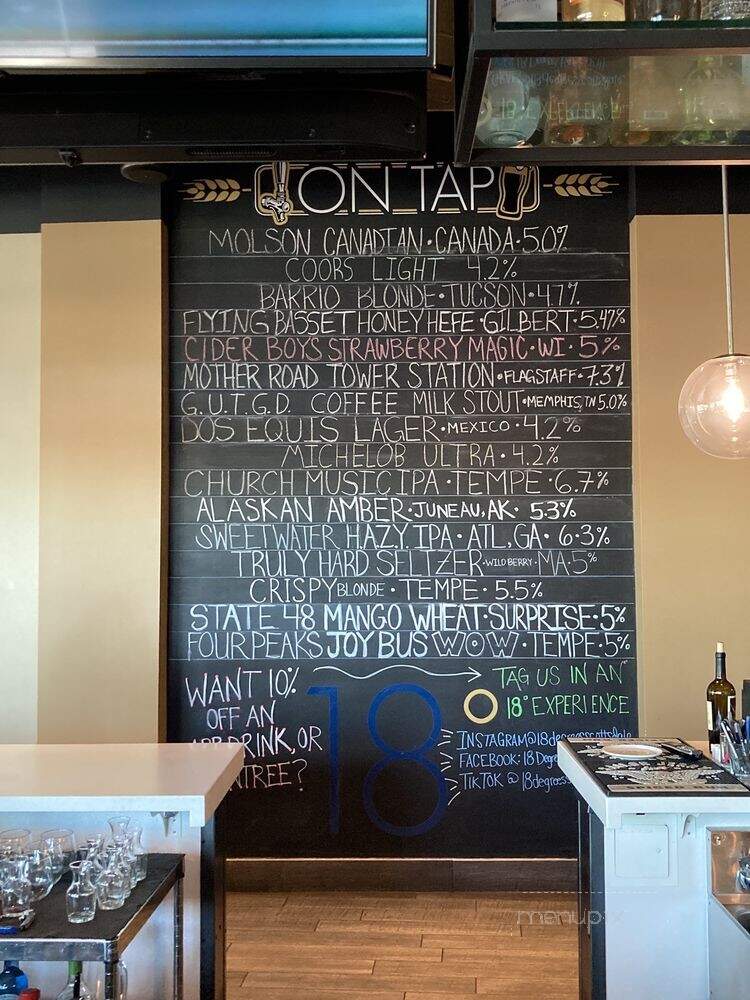 ON TAP
MOLSON CANADIAN • CANADA • 5.0%
COORS LIGHT 4.2%
BARRIO BLONDE • TUCSON • 4.7%
FLYING BASSET HONEY HEFE • GILBERT • 5.47%
CIDER BOYS STRAWBERRY MAGIC • WI • 5%
MOTHER ROAD TOWER STATION • FLAGSTAFF • 7.3%
G.U.T.G.D. COFFEE MILK STOUT • MEMPHIS, TN 5.0%
DOS EQUIS LAGER • MEXICO • 4.2%
MICHELOB ULTRA • 4.2%
CHURCH MUSIC IPA • TEMPE • 6.7%
ALASKAN AMBER • JUNEAU, AK • 5.3%
SWEETWATER H.A.Z.Y. IPA • ATL, GA • 6.3%
TRULY HARD SELTZER • WILD BERRY • MA • 5%
CRISPY BLONDE • TEMPE • 5.5%
STATE 48 MANGO WHEAT • SURPRISE • 5%
FOUR PEAKS JOY BUS WOW • TEMPE • 5%
WANT 10%
OFF AN
DRINK, OR
18
TAG US IN AN
18° EXPERIENCE
INSTAGRAM@18degreesscottsdale
FACEBOOK: 18 Degre
TIKTOK @ 18degrees
menup